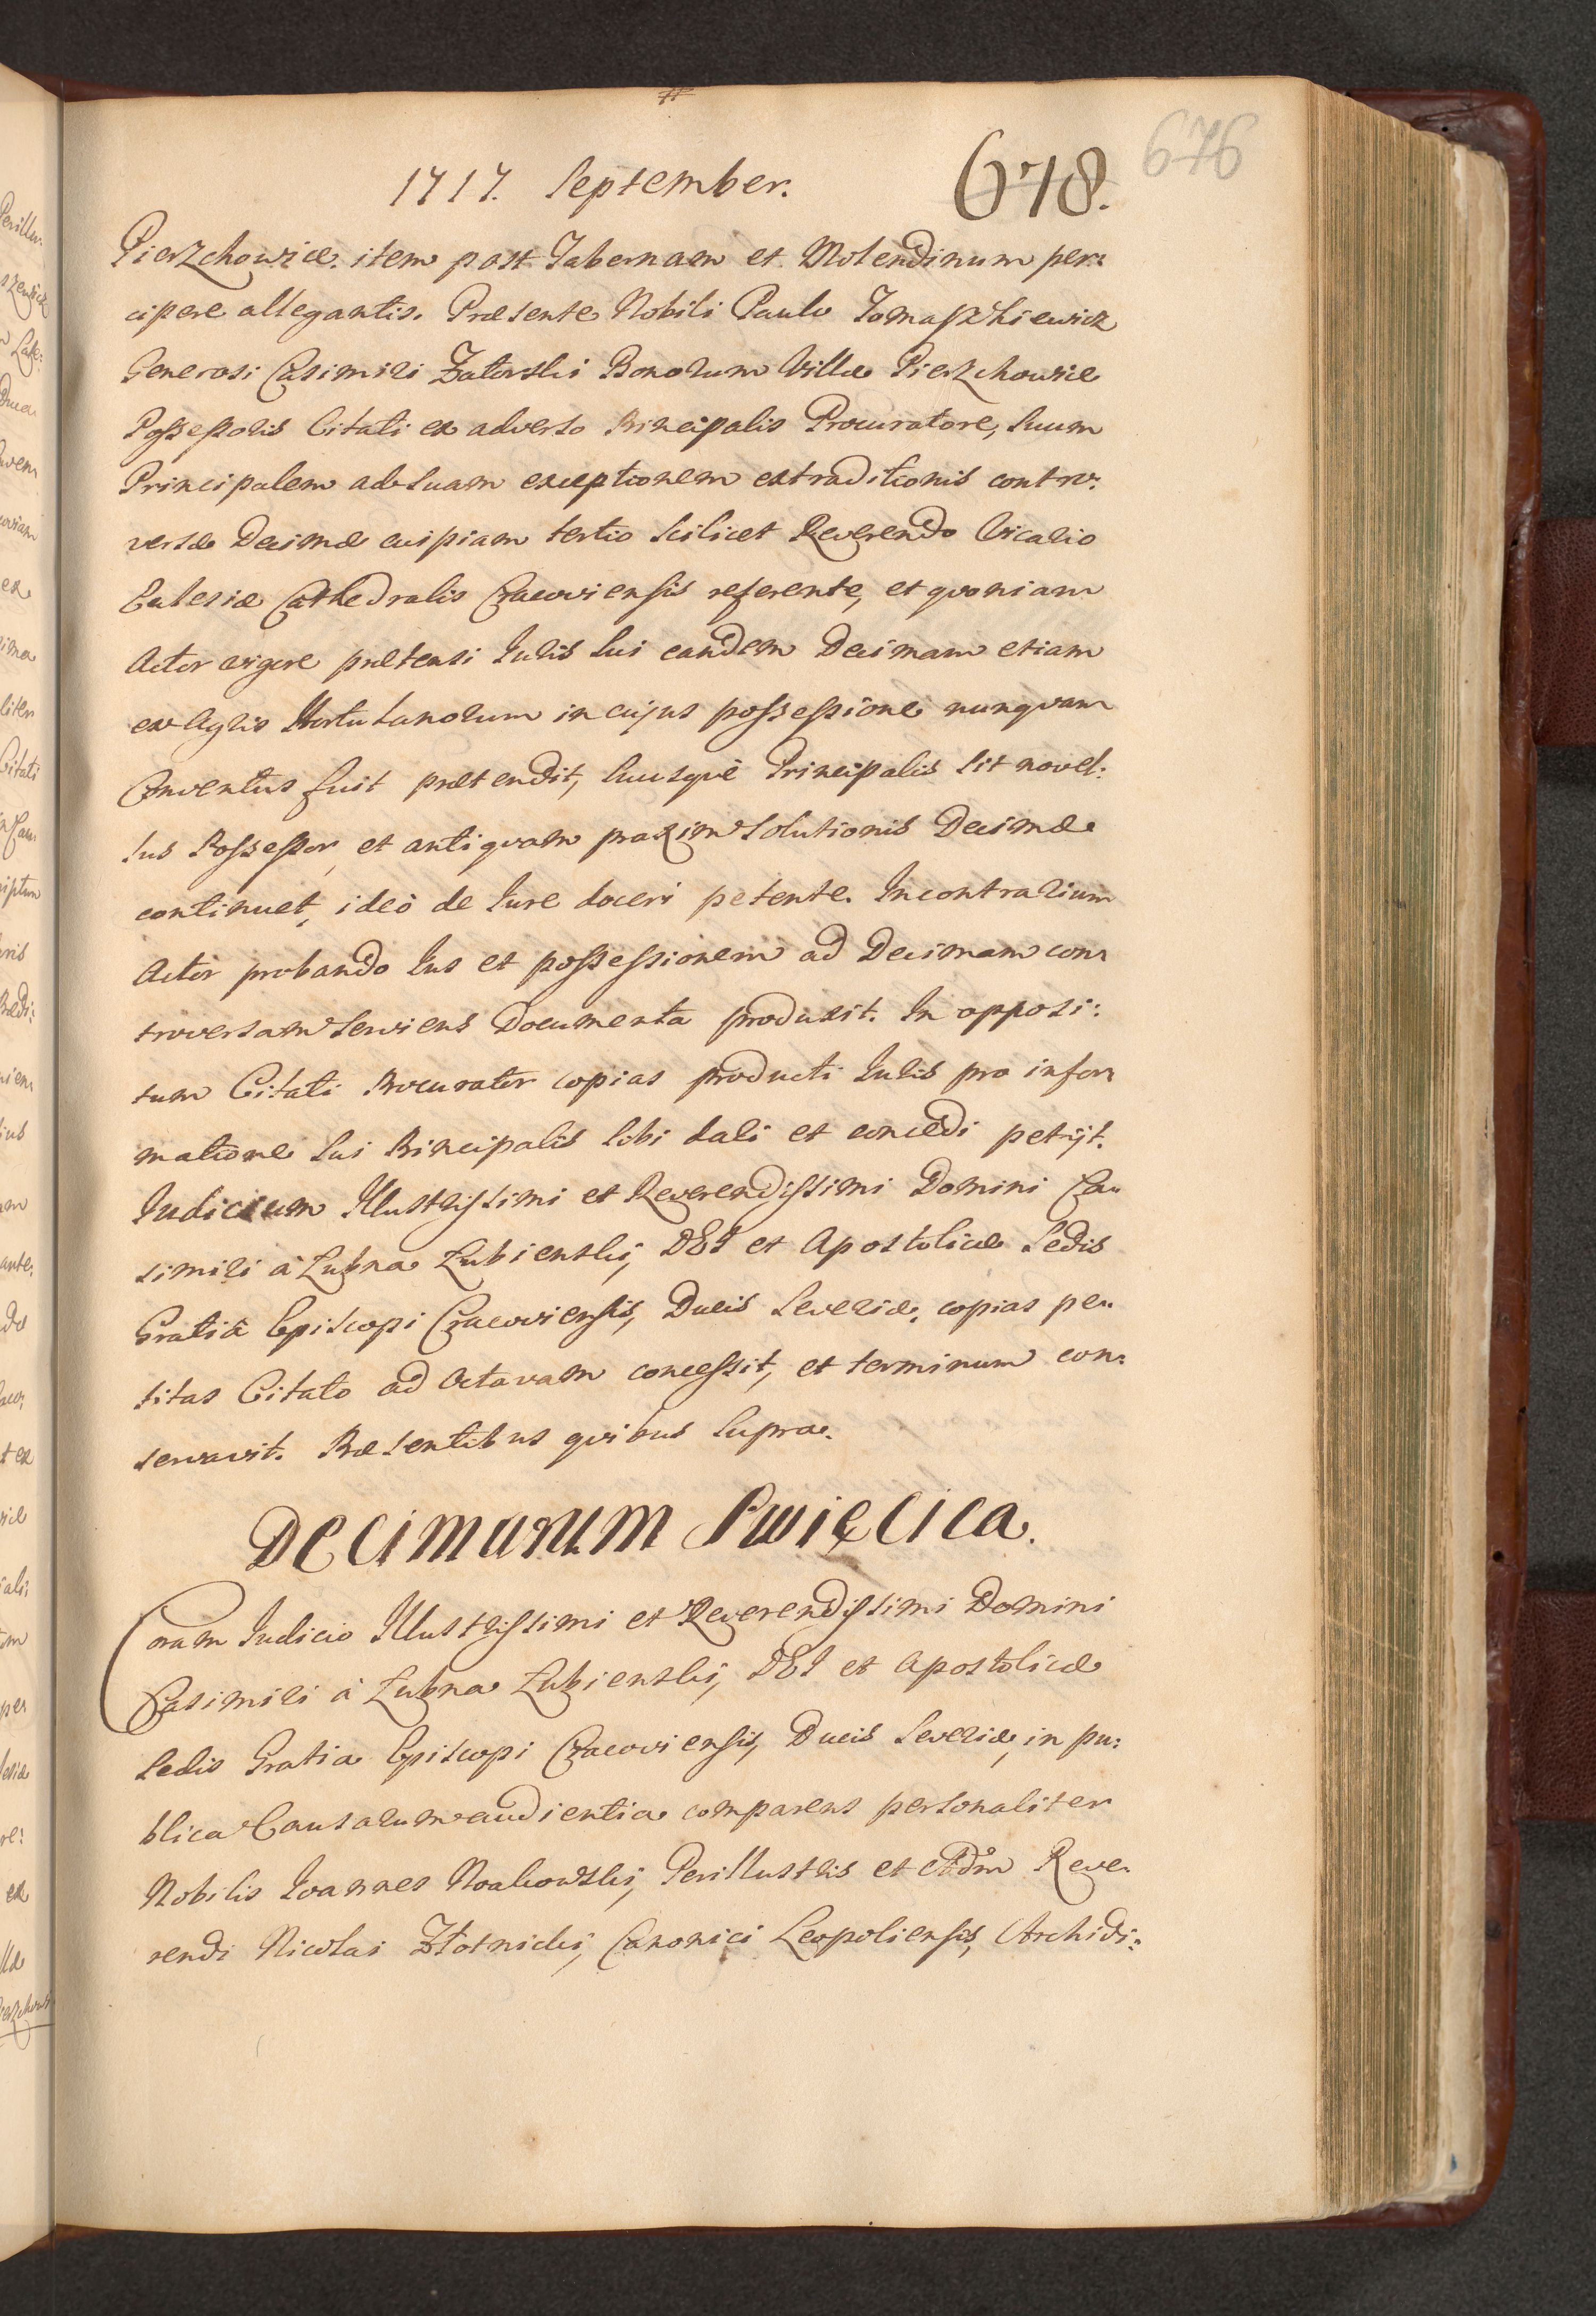 1717. September. 678. 676
Pierzchowice. item post Tabernam et Molendinum per:
cipere allegantis. Præsente Nobili Paulo Tomaszkiewicz
Generosi Casimiri Zatorski Bonorum Villæ Pierzchowice
Possessoris Citati ex adverso Principalis Procuratore, suum
Principalem ad suam exceptionem extraditionis contro:
versæ Decimæ cuipiam tertio scilicet Reverendo Vicario
Ecclesiæ Cathedralis Cracoviensis referente, et qvoniam
Actor vigore prætensi Iuris sui eandem Decimam etiam
ex Agris Hortulanorum in cujus possessione nunqvam
Conventus fuit prætendit, suusqvè Principalis sit novel:
lus Possessor, et antiqvam praxim solutionis Decimæ
continuet, ideò de Iure doceri petente. In contrarium
Actor probando Ius et possessionem ad Decimam con:
troversam serviens Documenta produxit. In opposi:
tum Citati Procurator copias producti Iuris pro infor:
matione sui Principalis sibi dari et concedi petijt.
Iudicium Illustrissimi et Reverendissimi Domini Ca:
simiri à Łubna Łubienski, DEI et Apostolicæ Sedis
Gratiâ Episcopi Cracoviensis, Ducis Severiæ, copias pe:
titas Citato ad Octavam concessit, et terminum con:
servavit. Præsentibus qvibus supra.
Decimarum Swięcica.
Coram Iudicio Illustrissimi et Reverendissimi Domini
Casimiri à Łubna Łubienski, DEI et Apostolicæ
Sedis Gratia Episcopi Cracoviensis, Ducis Severiæ, in pu:
blica Causarum audientia comparens personaliter
Nobilis Ioannes Noakowski, Perillustris et Adm Reve:
rendi Nicolai Złotnicki, Canonici Leopoliensis, Archidi: